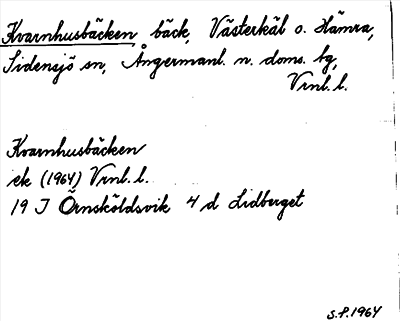 Kvarnhusbäcken bäck, Västerkäl o. Hämra,
Sidensjö sn, Ångermanl. n. doms. bg,
Vrnl. l.
Kvarnhusbäcken
ek (1964) Vrnl. l.
19 J Örnsköldsvik 4 d Lidberget
S.P. 1964